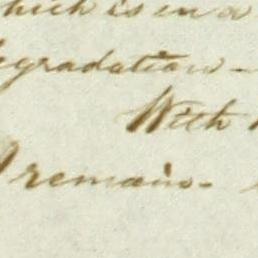 which is in a
degradation -
With
I remain -